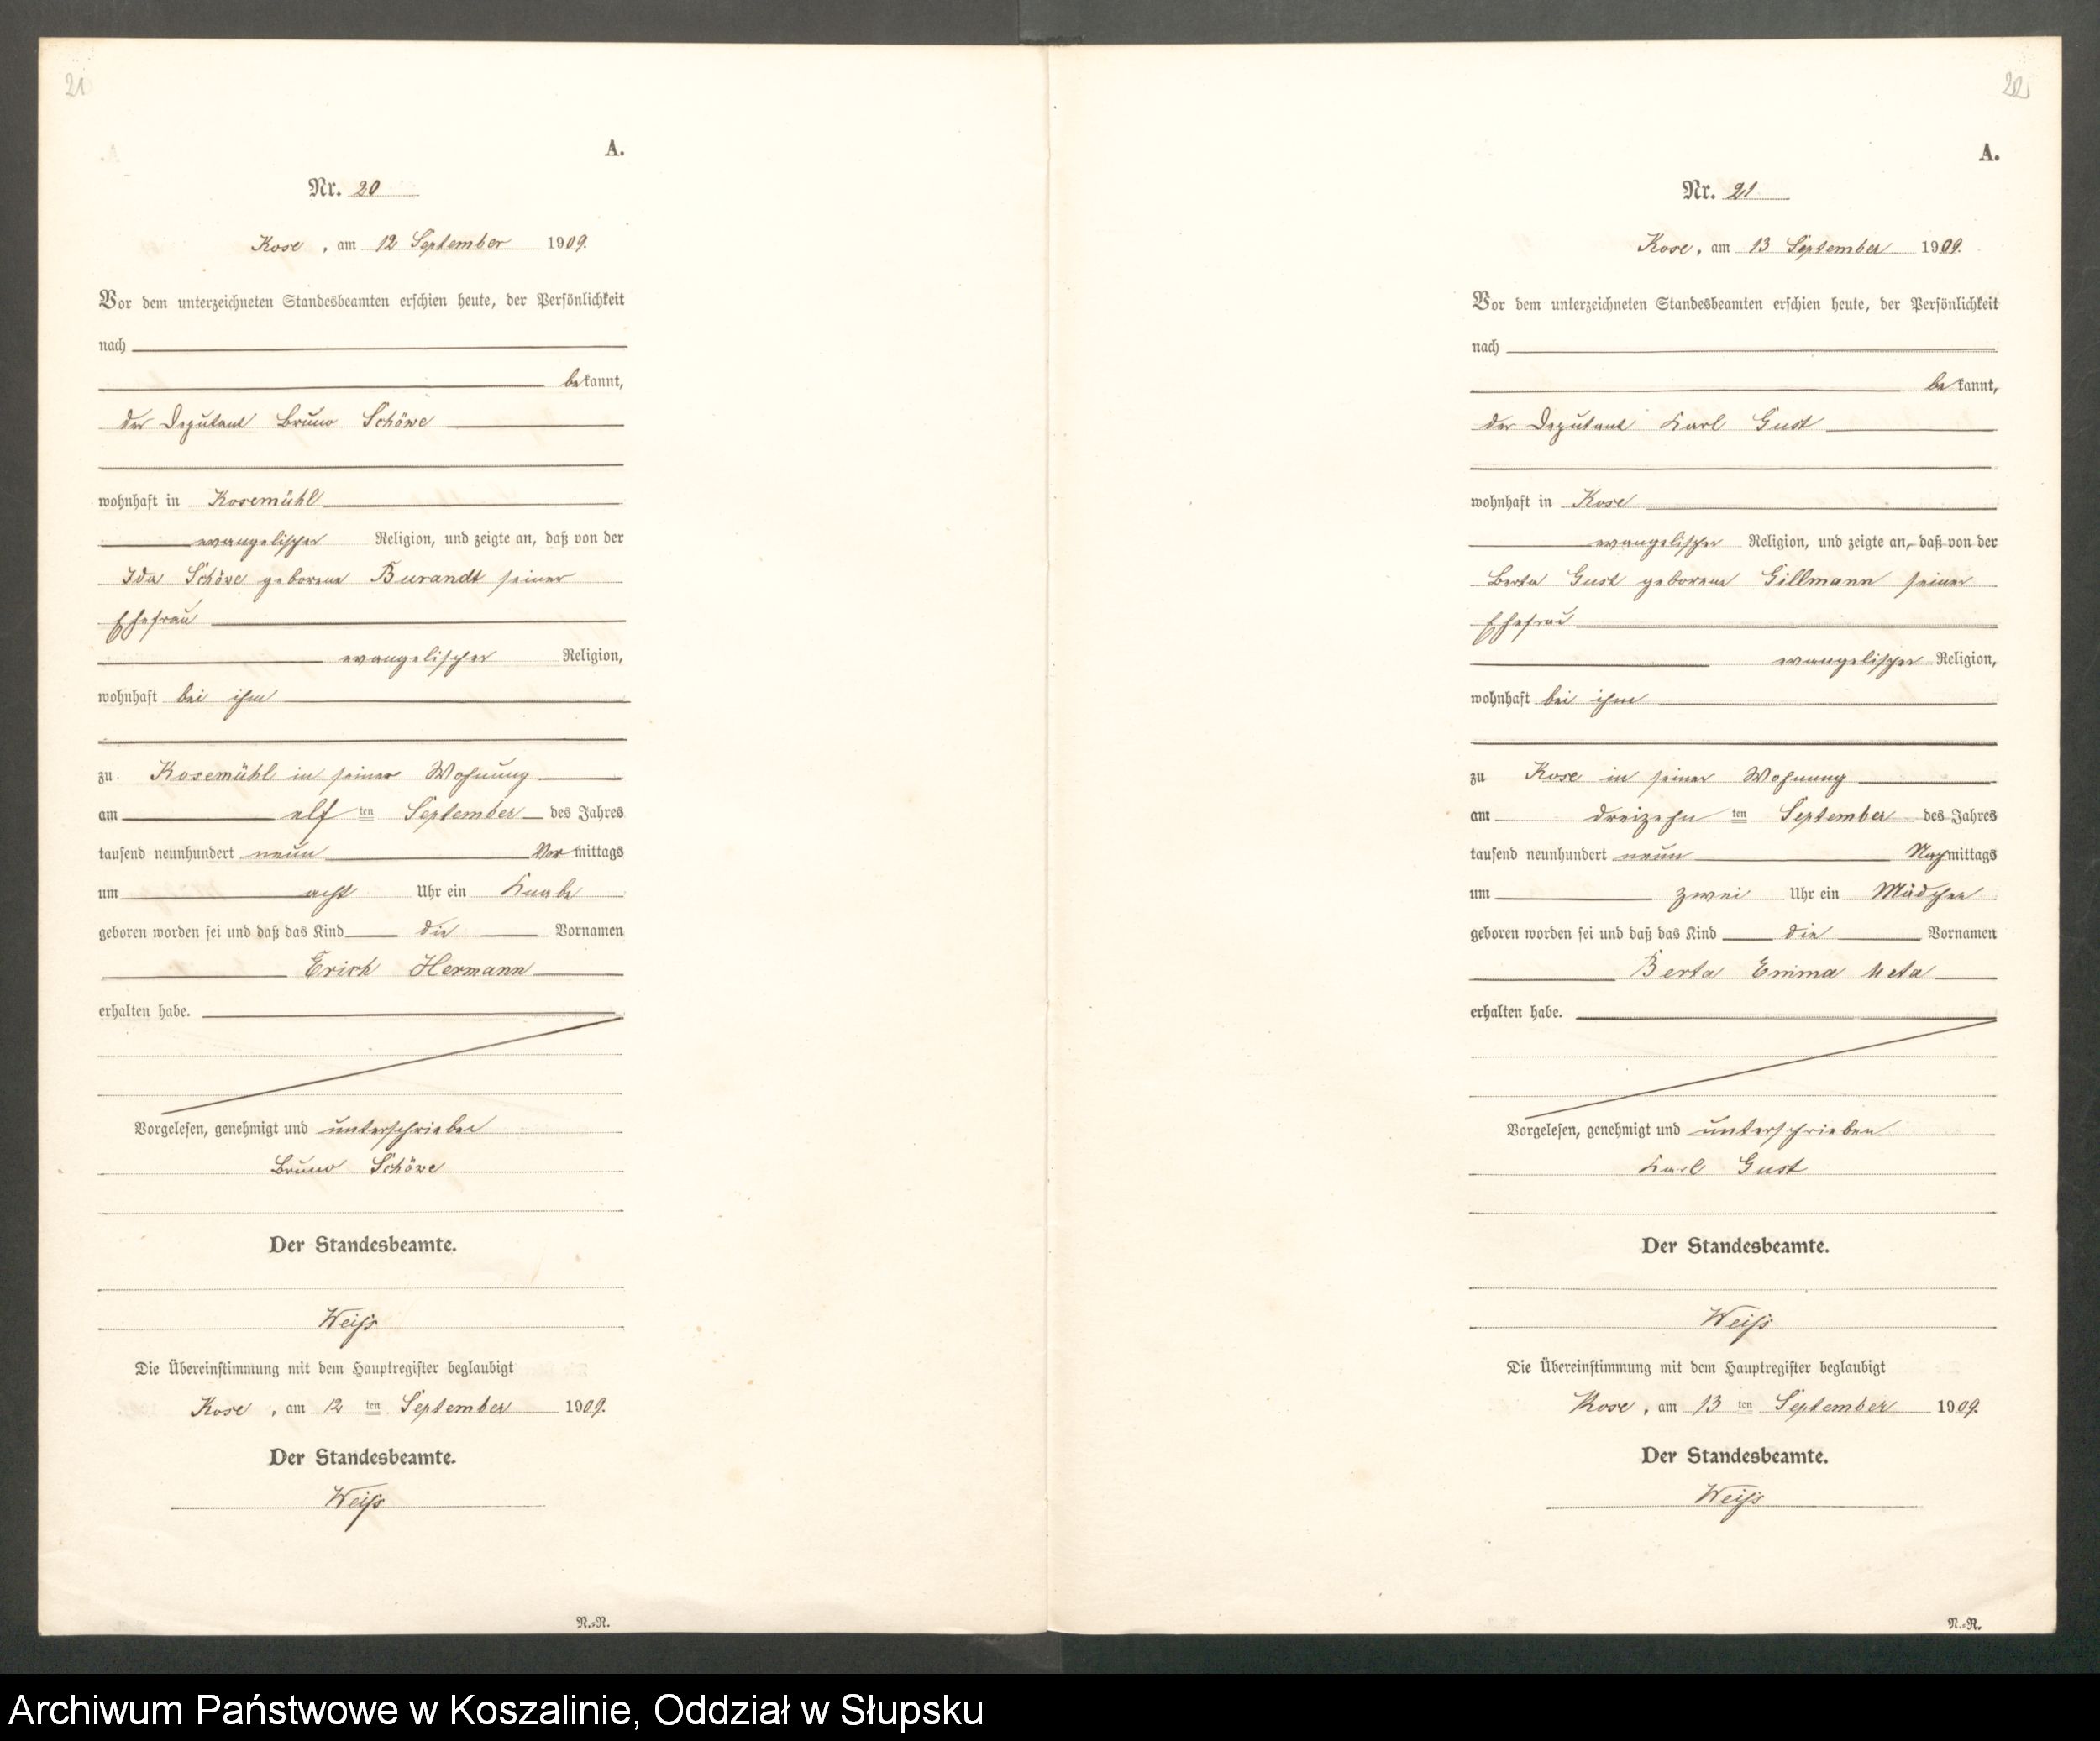 21
A.
Nr. 20
Kose, am 12 September 1909.
Vor dem unterzeichneten Standesbeamten erschien heute, der Persönlichkeit
nach
bekannt,
der Deputant Bruno Schöwe
wohnhaft in Kosemühl
evangelischer Religion, und zeigte an, daß von der
Ida Schöwe geborene Burandt seiner
Ehefrau
evangelischer Religion,
wohnhaft bei ihm
zu Kosemühl in seiner Wohnung
am elf ten September des Jahres
tausend neunhundert neun Vormittags
um acht Uhr ein Knabe
geboren worden sei und daß das Kind die Vornamen
Erich Hermann
erhalten habe.
Vorgelesen, genehmigt und unterschrieben
Bruno Schöwe
Der Standesbeamte.
Weiß
Die Übereinstimmung mit dem Hauptregister beglaubigt
Kose, am 12 ten September 1909.
Der Standesbeamte.
Weiß
N.=R.
22
A.
Nr. 21
Kose, am 13 September 1909.
Vor dem unterzeichneten Standesbeamten erschien heute, der Persönlichkeit
nach
bekannt,
der Deputant Karl Gust
wohnhaft in Kose
evangelischer Religion, und zeigte an, daß von der
Berta Gust geborene Gillmann seiner
Ehefrau
evangelischer Religion,
wohnhaft bei ihm
zu Kose in seiner Wohnung
am dreizehn ten September des Jahres
tausend neunhundert neun Nachmittags
um zwei Uhr ein Mädchen
geboren worden sei und daß das Kind die Vornamen
Berta Emma Meta
erhalten habe.
Vorgelesen, genehmigt und unterschrieben
Karl Gust
Der Standesbeamte.
Weiß
Die Übereinstimmung mit dem Hauptregister beglaubigt
Kose, am 13 ten September 1909.
Der Standesbeamte.
Weiß
N.=R.
Archiwum Państwowe w Koszalinie, Oddział w Słupsku